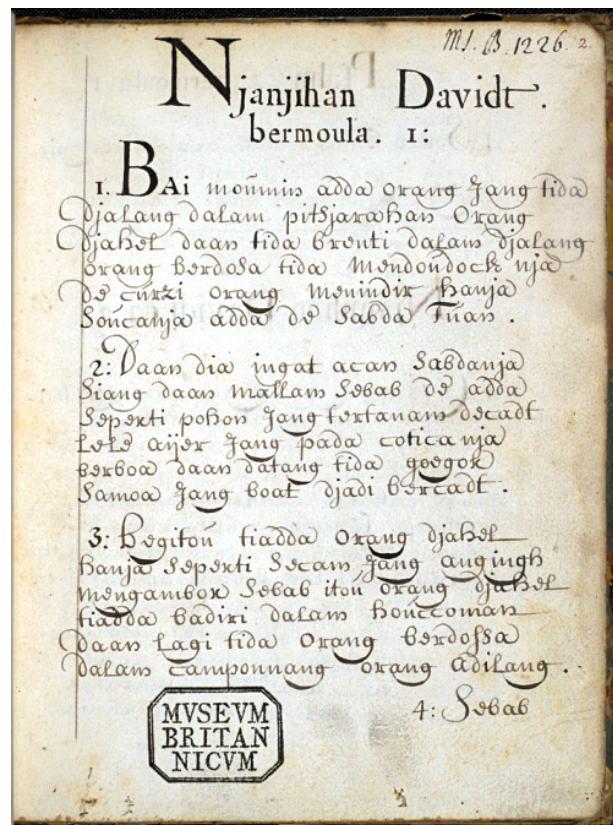 MS. B. 1226. 2.
Njanjihan Davidt.
bermoula. 1:
1. BAi moumin adda orang Jang tida
djalang dalam pitsjarahan Orang
djahel daan tida brenti dalam djalang
orang berdosa tida Mendoudock nja
de curzi orang Menindir hanja
Soucanja adda de Sabda Tuan.
2: Daan dia ingat acan Sabdanja
Siang daan mallam Sebab de adda
Seperti pohon Jang tertanam decadt
Lelé aijer Jang pada cotica nja
berboa daan datang tida goegor
Samoa Jang boat djadi bercadt.
3: Begitou tiadda Orang djahel
hanja Seperti Secam, Jang angingh
mengambor Sebab itou orang djahel
tiadda badiri dalam houccoman
daan Lagi tida Orang berdossa
dalam camponnang orang adilang.
4: Sebab
MVSEVM
BRITAN
NICVM